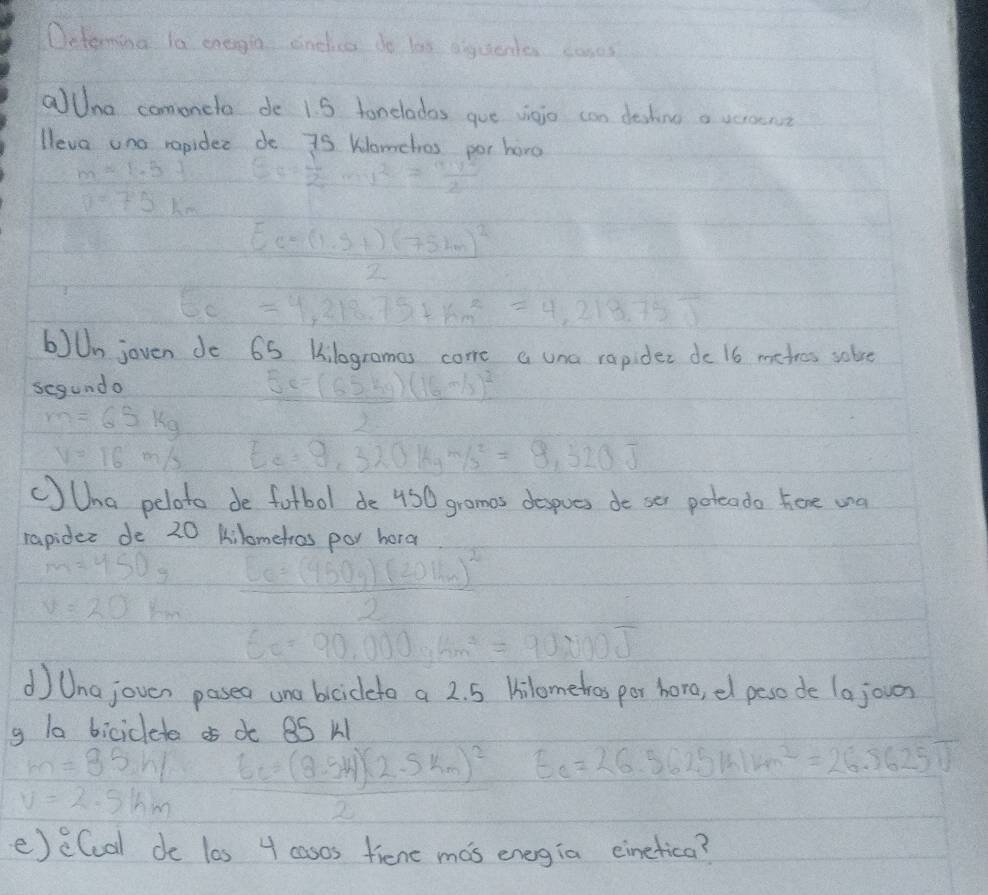 Determina la energia cinetica de los siguientes casos
a) Una camioneta de 1.5 toneladas que viaja con destino a veracruz
lleva una rapidez de 75 kilometros por hora
m = 1.5 t Ec = 1/2 mv² = mv²/2
v = 75 km
Ec = (1.5 t)(75 km)²
2
Ec = 4,218.75 t km² = 4,218.75 J
b) Un joven de 65 kilogramos corre a una rapidez de 16 metros sobre
segundo Ec = (65 kg)(16 m/s)²
m = 65 kg 2
v = 16 m/s Ec = 8,320 kg m/s² = 8,320 J
c) Una pelota de futbol de 450 gramos despues de ser pateada tiene una
rapidez de 20 kilometros por hora
m = 450 g Ec = (450 g)(20 km)²
v = 20 km 2
Ec = 90,000 g km² = 90,000 J
d) Una joven pasea una bicicleta a 2.5 kilometros por hora, el peso de la joven
y la bicicleta de 85 kl
m = 85 kl Ec = (8.5 kl)(2.5 km)² Ec = 26.5625 kl km² = 26.5625 J
v = 2.5 km 2
e) ¿Cual de los 4 casos tiene más energía cinetica?